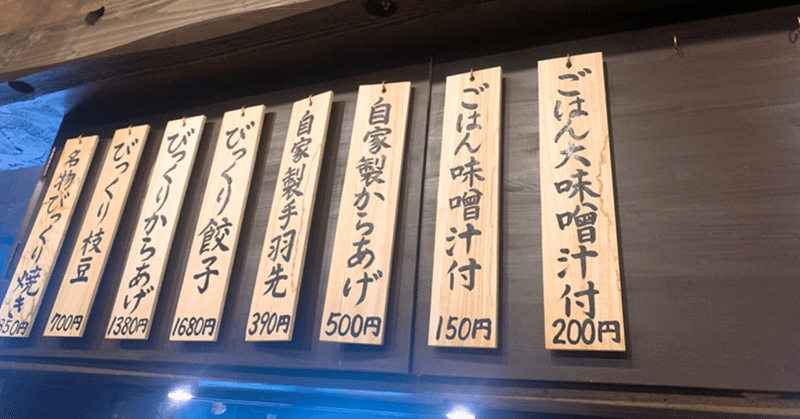 ごはん大味噌汁付
200円
ごはん味噌汁付
150円
自家製からあげ
500円
自家製手羽先
390円
びっくり餃子
1680円
びっくりからあげ
1380円
びっくり枝豆
700円
名物びっくり焼き